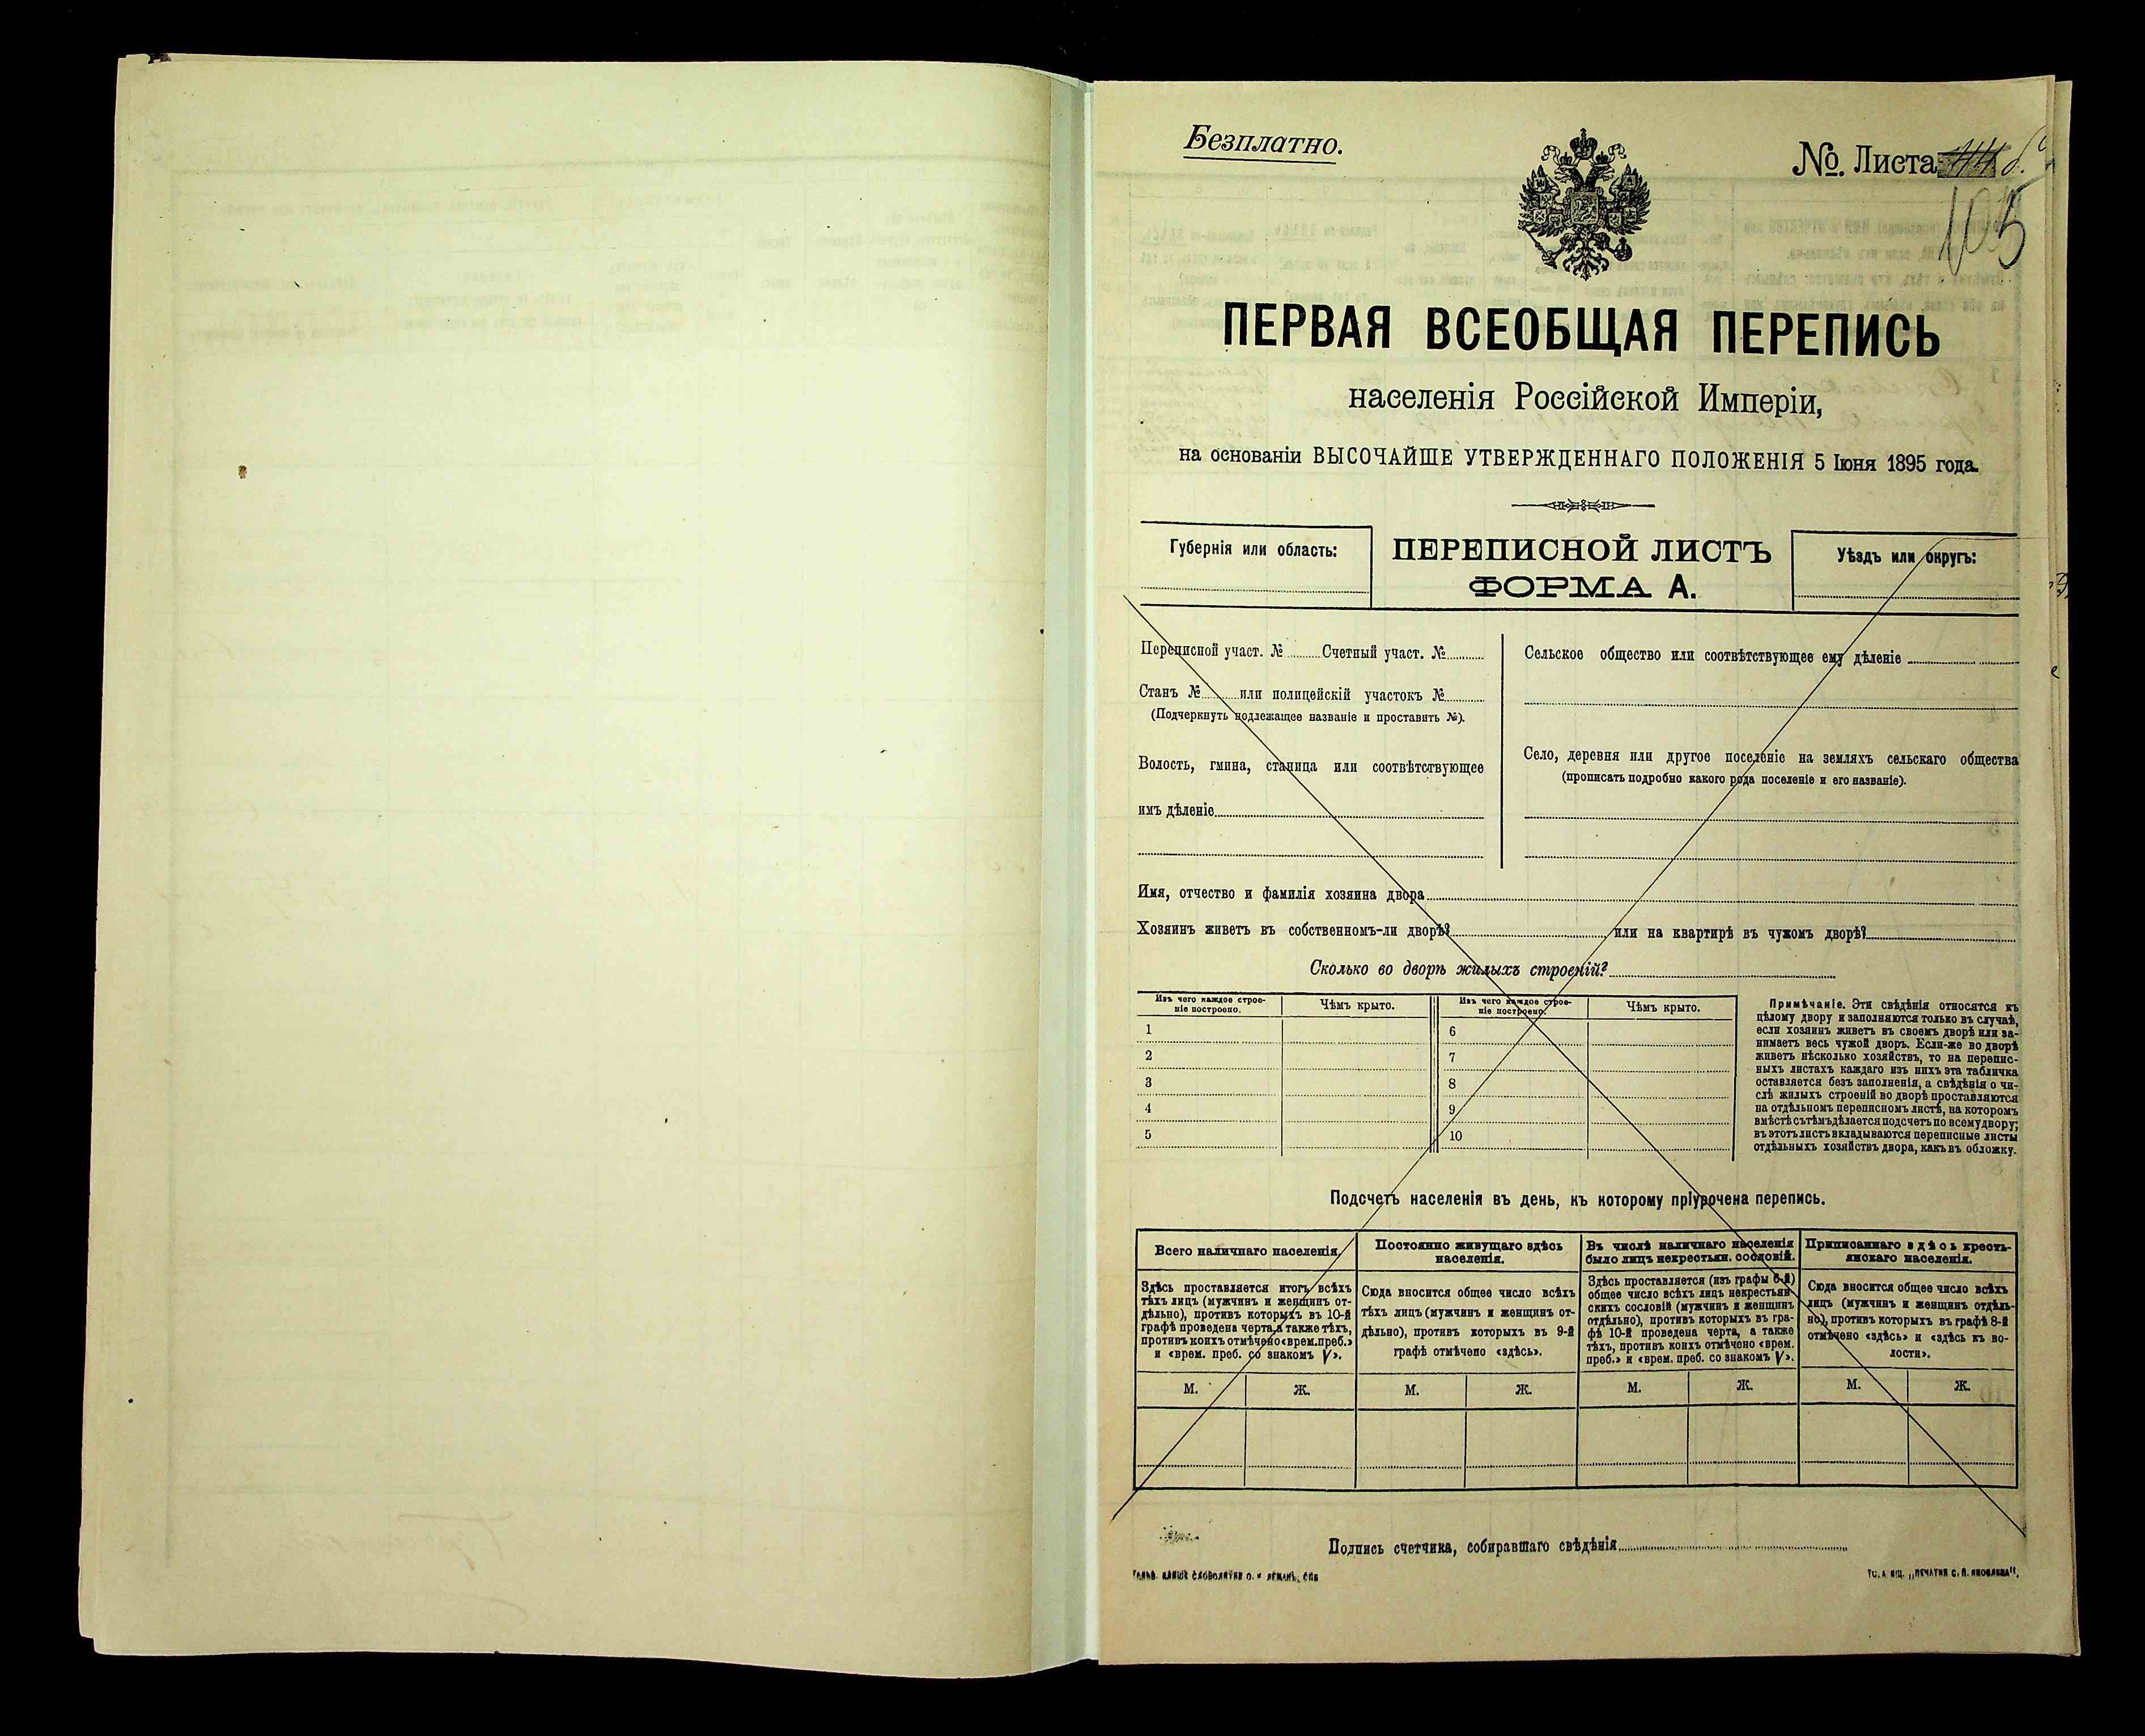 Безплатно.
№. Листа
105
ПЕРВАЯ ВСЕОБЩАЯ ПЕРЕПИСЬ
населенія Россійской Имперіи,
на основаніи ВЫСОЧАЙШЕ УТВЕРЖДЕННАГО ПОЛОЖЕНІЯ 5 Іюня 1895 года.
Губернія или область:
ПЕРЕПИСНОЙ ЛИСТЪ
ФОРМА А.
Уѣздъ или округъ:
Переписной участ. № Счетный участ. №
Станъ № или полицейскій участокъ №
(Подчеркнуть подлежащее названіе и проставить №).
Волость, гмина, станица или соотвѣтствующее
имъ дѣленіе
Сельское общество или соотвѣтствующее ему дѣленіе
Село, деревня или другое поселеніе на земляхъ сельскаго общества
(прописать подробно какого рода поселеніе и его названіе).
Имя, отчество и фамилія хозяина двора
Хозяинъ живетъ въ собственномъ-ли дворѣ? или на квартирѣ въ чужомъ дворѣ?
Сколько во дворѣ жилыхъ строеній?
Изъ чего каждое строе-
ніе построено.
Чѣмъ крыто.
1
2
3
4
5
Изъ чего каждое строе-
ніе построено.
Чѣмъ крыто.
6
7
8
9
10
Примѣчаніе. Эти свѣдѣнія относятся къ
цѣлому двору и заполняются только въ случаѣ,
если хозяинъ живетъ въ своемъ дворѣ или за-
нимаетъ весь чужой дворъ. Если-же во дворѣ
живетъ нѣсколько хозяйствъ, то на перепис-
ныхъ листахъ каждаго изъ нихъ эта табличка
оставляется безъ заполненія, а свѣдѣнія о чи-
слѣ жилыхъ строеній во дворѣ проставляются
на отдѣльномъ переписномъ листѣ, на которомъ
вмѣстѣ съ тѣмъ дѣлается подсчетъ по всему двору;
въ этотъ листъ вкладываются переписные листы
отдѣльныхъ хозяйствъ двора, какъ въ обложку.
Подсчетъ населенія въ день, къ которому пріурочена перепись.
Всего наличнаго населенія.
Здѣсь проставляется итогъ всѣхъ
тѣхъ лицъ (мужчинъ и женщинъ от-
дѣльно), противъ которыхъ въ 10-й
графѣ проведена черта, а также тѣхъ,
противъ коихъ отмѣчено «врем. преб.»
и «врем. преб. со знакомъ V».
М. Ж.
Постоянно живущаго здѣсь
населенія.
Сюда вносится общее число всѣхъ
тѣхъ лицъ (мужчинъ и женщинъ от-
дѣльно), противъ которыхъ въ 9-й
графѣ отмѣчено «здѣсь».
М. Ж.
Въ числѣ наличнаго населенія
было лицъ некрестьян. сословій.
Здѣсь проставляется (изъ графы 6-й)
общее число всѣхъ лицъ некрестьян-
скихъ сословій (мужчинъ и женщинъ
отдѣльно), противъ которыхъ въ гра-
фѣ 10-й проведена черта, а также
тѣхъ, противъ коихъ отмѣчено «врем.
преб.» и «врем. преб. со знакомъ V».
М. Ж.
Приписаннаго здѣсь кресть-
янскаго населенія.
Сюда вносится общее число всѣхъ
лицъ (мужчинъ и женщинъ отдѣль-
но), противъ которыхъ въ графѣ 8-й
отмѣчено «здѣсь» и «здѣсь къ во-
лости».
М. Ж.
Подпись счетчика, собиравшаго свѣдѣнія